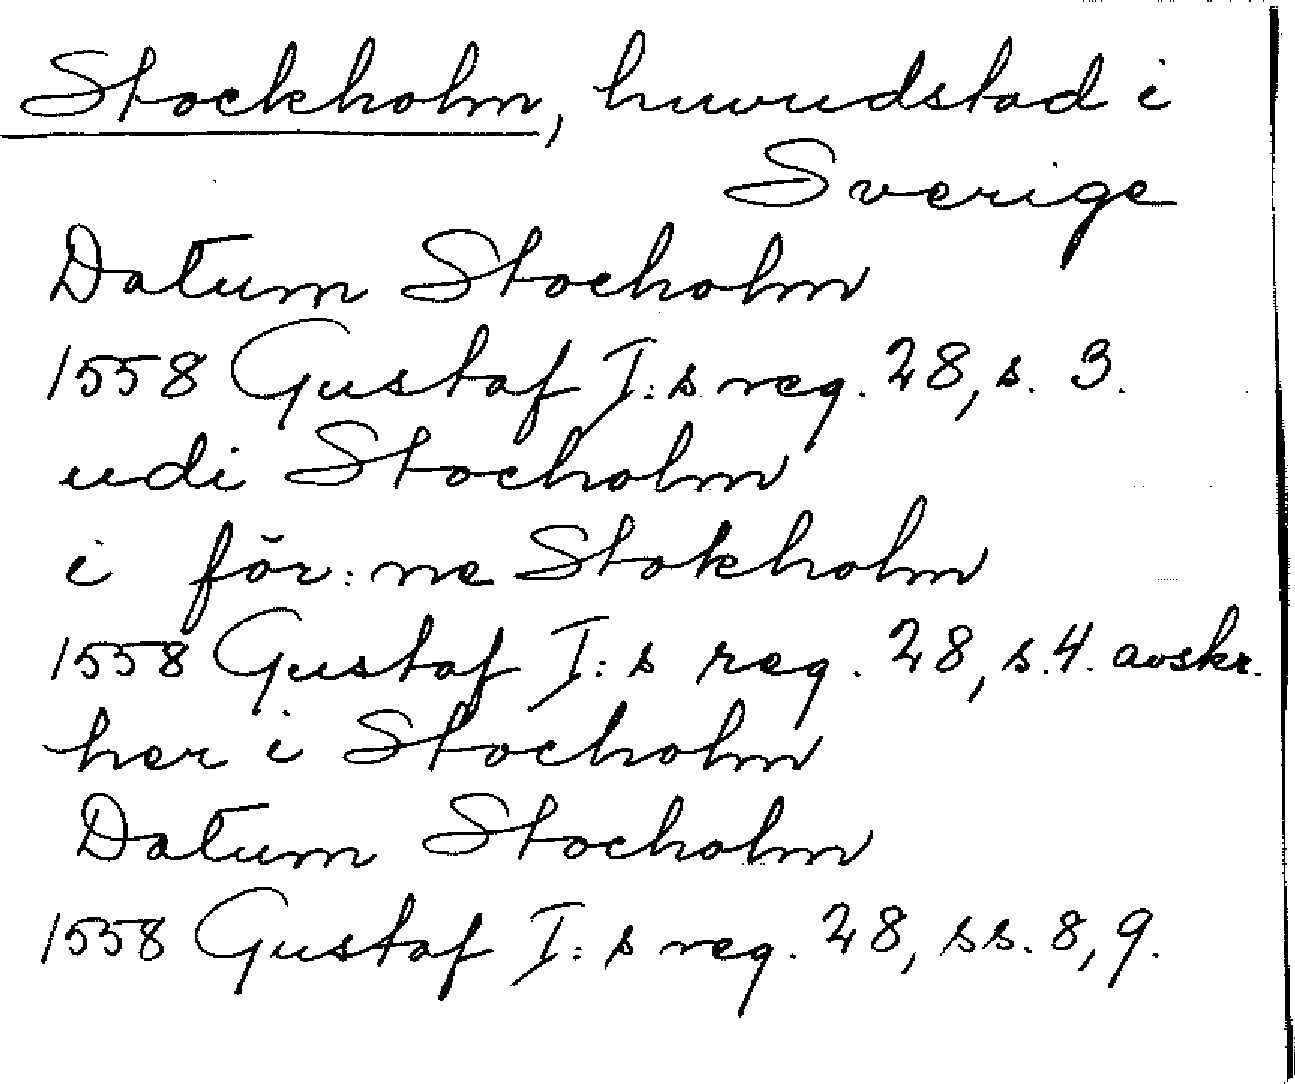 Stockholm, huvudstad i
Sverige
Datum Stocholm
1558 Gustaf I:s reg. 28, s. 3.
udi Stocholm
i för:ne Stokholm
1558 Gustaf I:s reg. 28, s. 4. avskr.
her i Stocholm
Datum Stocholm
1558 Gustaf I:s reg. 28, ss. 8, 9.